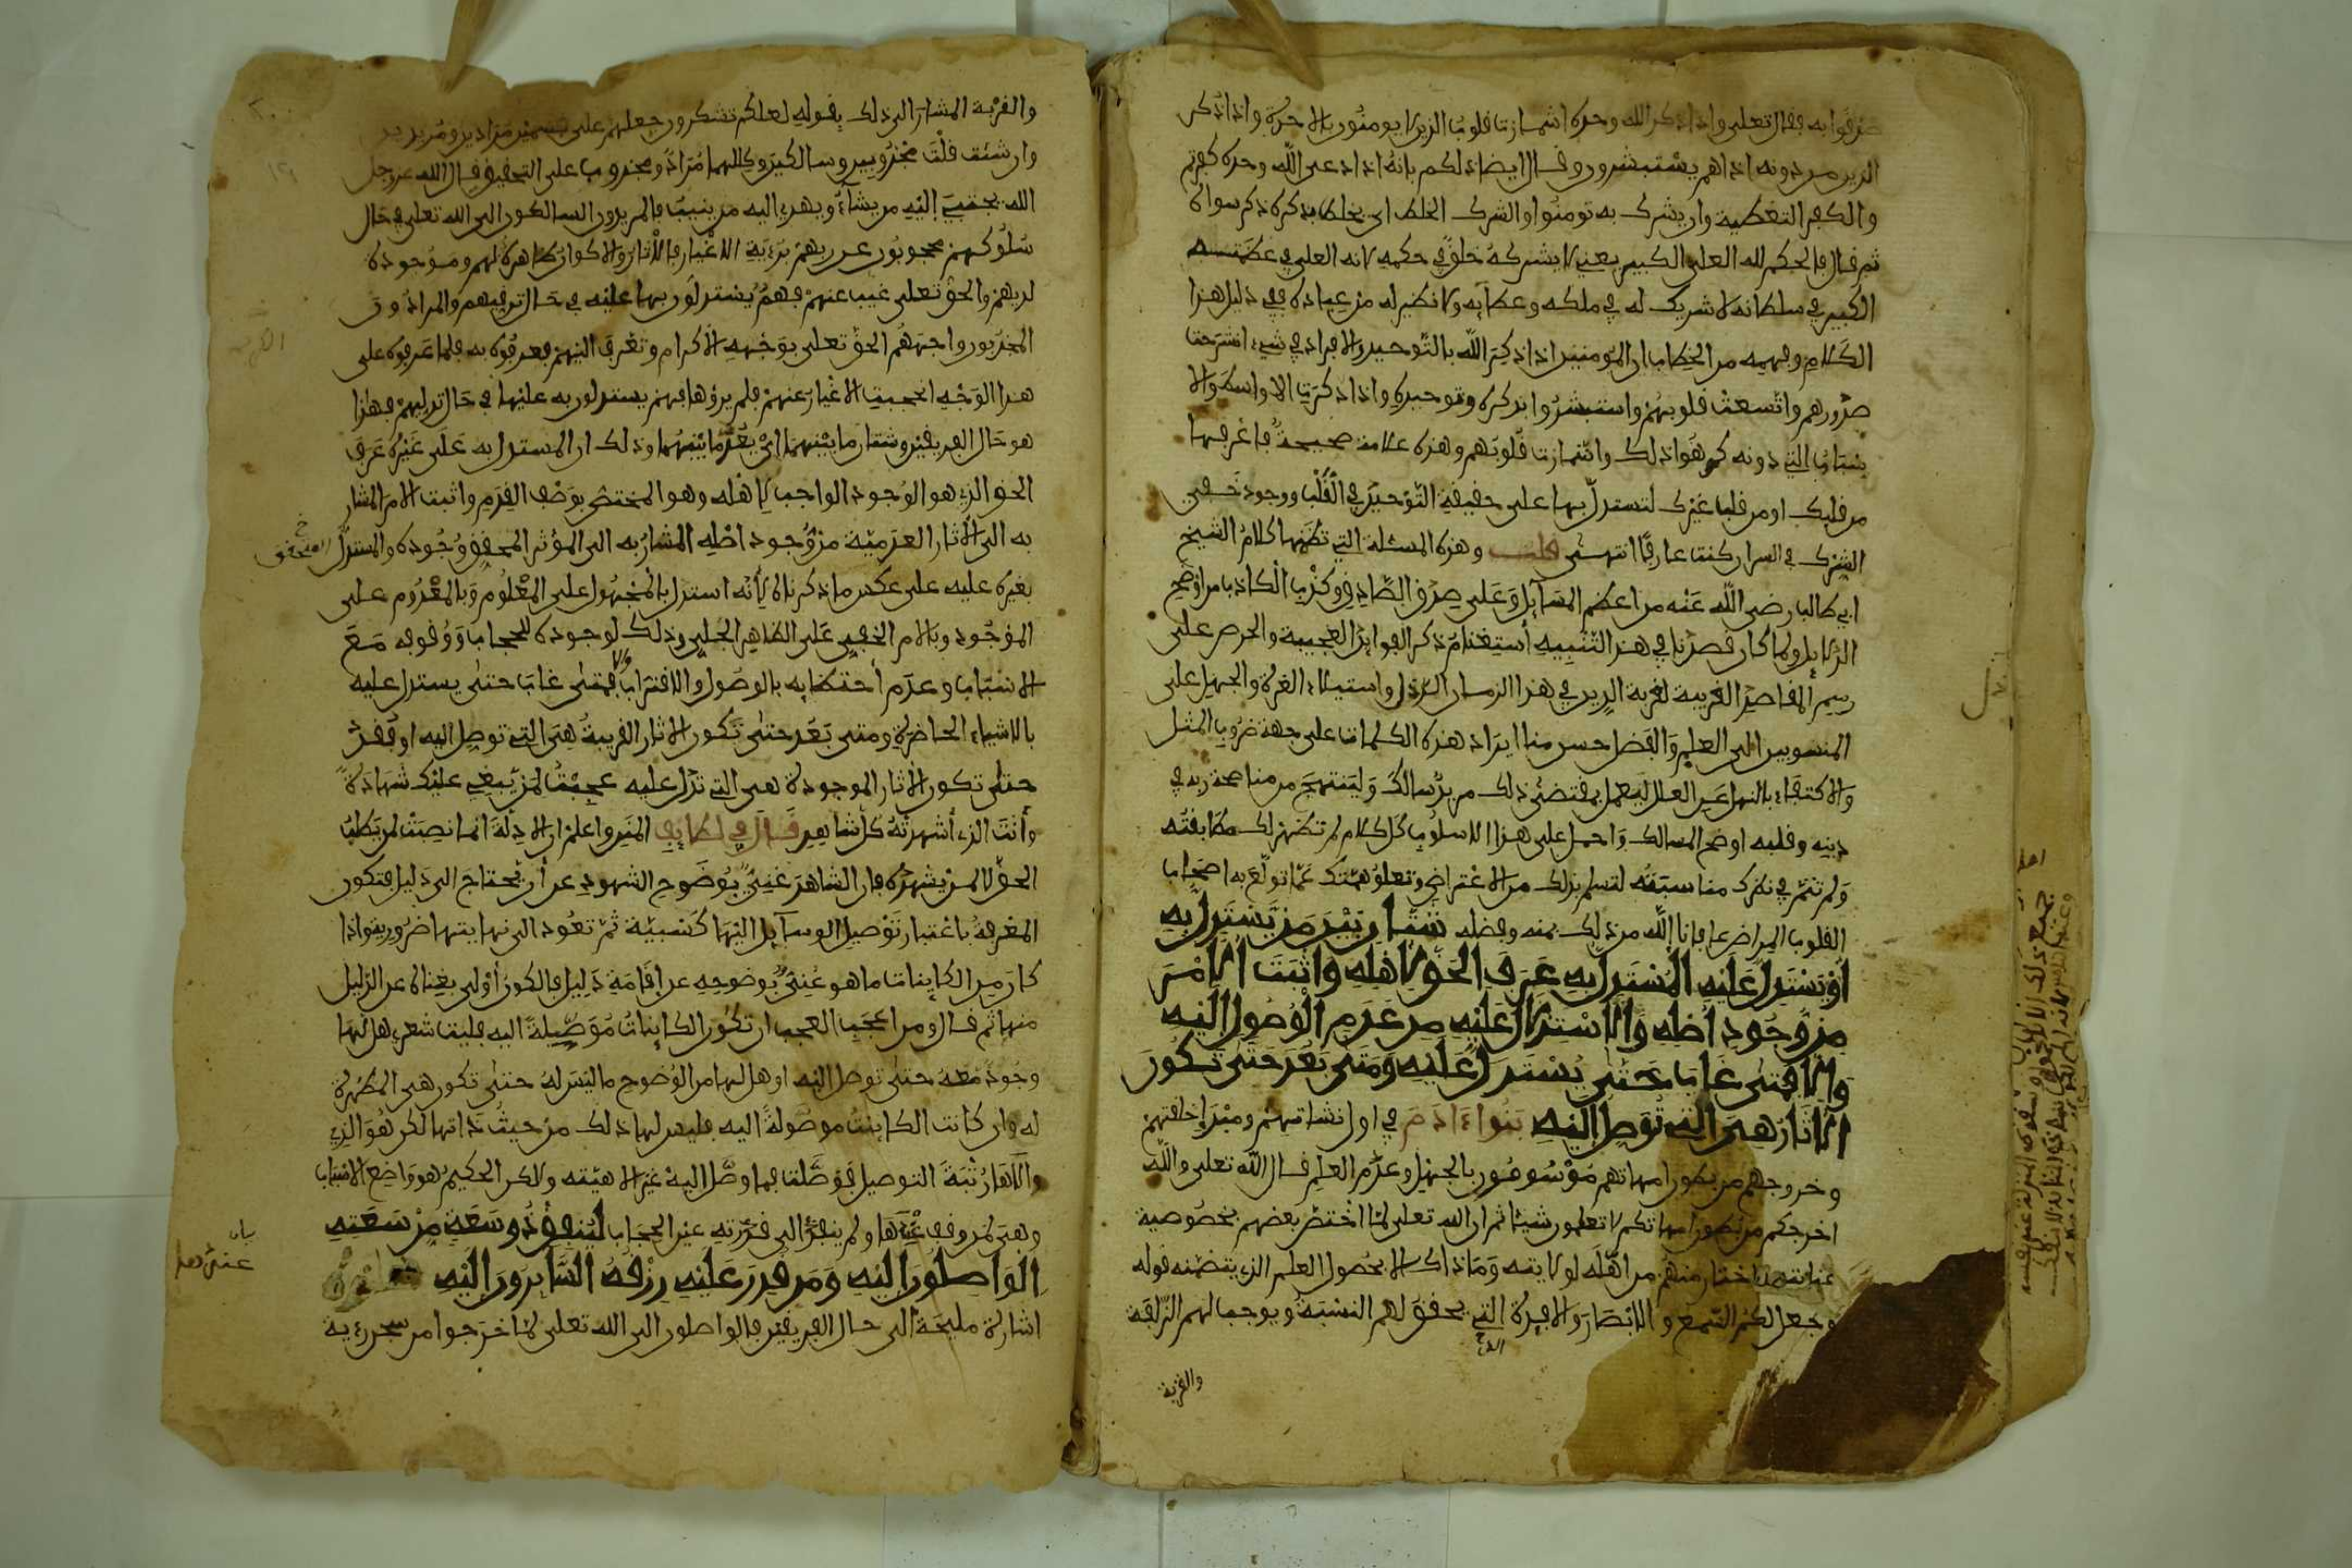 صرفوا به فقال تعلى واذا ذكر الله وحده اشمازت قلوب الذين لا يومنون بالاخرة واذا ذكر
الذين من دونه اذا هم يستبشرون وقال ايضا ذلكم بانه اذا دعي الله وحده كفرتم
والكفر التغطية وان يشرك به تومنوا والشرك الخلط اي يخلط بذكره ذكر سواه
ثم قال فالحكم لله العلي الكبير يعني لا يشركه خلق في حكمه لانه العلي في عظمته
الكبير في سلطانه لا شريك له في ملكه وعطايه ولا نظير له من عباده ففي دليل هذا
الكلام وفهمه من الخطاب ان المومنين اذا ذكر الله بالتوحيد والافراد في شيء انشرحت
صدورهم واتسعت قلوبهم واستبشروا بذكره وتوحيده واذا ذكرت الاواسط والا
سباب التي دونه كرهوا ذلك واشمازت قلوبهم وهذه علامة صحيحة فاعرفها
من قلبك او من قلب غيرك لتستدل بها على حقيقة التوحيد في القلب ووجود خفي
الشرك في السر ان كنت عارفا انتهى قلت وهذه المسئلة التي تضمنها كلام الشيخ
ابي طالب رضي الله عنه من اعظم المسايل وعلى صدق الصادق وكذب الكاذب من اوضح
الدلايل ولما كان قصدنا في هذا التنبيه استغنام ذكر الفوايد العجيبة والحرص على
رسم المقاصد الغريبة لغربة الدين في هذا الزمان الرذل واستيلاء الغرة والجهل على
المنسوبين الى العلم والفضل حسن منا ايراد هذه الكلمات على جهة ضروب المثل
والاكتفاء بالنهل عن العلل ليعمل بمقتضى ذلك من يرى سالك ولينتهج من مناصحة ربه في
دينه وقلبه اوضح المسالك واحمل على هذا الاسلوب كل كلام لم تظهر لك مطابقته
ولم تتم في نظرك مناسبته لتسلم بذلك من الاعتراض وتعلو همتك عما تولع به اصحاب
القلوب المراض عافانا الله من ذلك بمنه وفضله شتان بين من يستدل به
او يستدل عليه المستدل به عرف الحق لاهله واثبت الامر
من وجود اصله والاستدلال عليه من عدم الوصول اليه
والا فمتى غاب حتى يستدل عليه ومتى بعد حتى تكون
الاثار هي التي توصل اليه بنوا ءادم في اول نشاتهم ومبدإ خلقتهم
وخروجهم من بطون امهاتهم موسومون بالجهل وعدم العلم قال الله تعلى والله
اخرجكم من بطون امهاتكم لا تعلمون شيئا ثم ان الله تعلى لما اختص بعضهم بخصوصية
عنايته اختار منهم من اهله لولايته وما ذاك الا بحصول العلم الذي يتضمنه قوله
وجعل لكم السمع والابصار والافئدة التي يحقق لهم النسبة ويوجب لهم الزلفة
والقربة
والقربة المشار الى ذلك بقوله لعلكم تشكرون جعلهم على قسمين مرادين ومريدين
وان شئت قلت مجذوبين وسالكين وكلاهما مراد ومجذوب على التحقيق قال الله عز وجل
الله يجتبي اليه من يشاء ويهدي اليه من ينيب فالمريدون السالكون الى الله تعلى في حال
سلوكهم محجوبون عن ربهم برؤية الاغيار فالاثار والاكوان ظاهرة لهم وموجودة
لديهم والحق تعلى غيب عنهم فهم يستدلون بها عليه في حال ترقيهم والمرادون
المجذوبون واجههم الحق تعلى بوجهه الاكرام وتعرف اليهم فعرفوه به فلما عرفوه على
هذا الوجه انحجبت الاغيار عنهم فلم يروها فهم يستدلون به عليها في حال تدليهم فهذا
هو حال الفريقين وشتان ما بينهما اي بعد ما بينهما وذلك ان المستدل به على غيره عرف
الحق الذي هو الوجود الواجب لاهله وهو المختص بوصف القدم واثبت الامر المشار
به الى الاثار العدمية من وجود اصله المشار به الى المؤثر المحقق وجوده والمستدل
بغيره عليه على عكس ما ذكرناه لانه استدل بالمجهول على المعلوم وبالمعدوم على
الموجود وبالامر الخفي على الظاهر الجلي وذلك لوجوده للحجاب ووقوفه مع
الاسباب وعدم احتظايه بالوصول والاقتراب والا فمتى غاب حتى يستدل عليه
بالاشياء الحاضرة ومتى بعد حتى تكون الاثار القريبة هي التي توصل اليه او فقد
حتى تكون الاثار الموجودة هي التي تدل عليه عجبت لمن يبغي عليك شهادة
وانت الذي اشهدته كل شاهد قال في لطايف المنن واعلم ان الادلة انما نصبت لمن يطلب
الحق لا لمن يشهده فان الشاهد غني بوضوح الشهود عن ان يحتاج الى دليل فتكون
المعرفة باعتبار توصيل الوسايل اليها كسبية ثم تعود الى نهايتها ضرورية واذا
كان من الكاينات ما هو غني بوضوحه عن اقامة دليل فالمكون اولى بغناه عن الدليل
منها ثم قال ومن اعجب العجب ان تكون الكاينات موصلة اليه فليت شعري هل لها
وجود معه حتى توصل اليه او هل لها من الوضوح ما ليس له حتى تكون هي المظهرة
له وان كانت الكاينات موصولة اليه فليس لها ذلك من حيث ذاتها لكن هو الذي
ولاها رتبة التوصيل فوصلت فما وصل اليه غير الاهيته ولاكن الحكيم هو واضع الاسباب
وهي لمن وقف عندها ولم ينفذ الى قدرته عين الحجاب لينفق ذو سعة من سعته
الواصلون اليه ومن قدر عليه رزقه السايرون اليه
اشارة مليحة الى حال الفريقين فالواصلون الى الله تعلى لما خرجوا من سجن رؤية